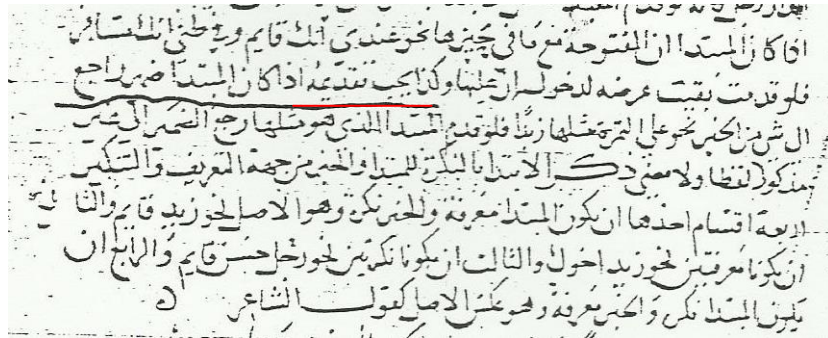 اذا كان المبتدا ان المفتوحة مع ما في حيزها نحو عندي انك قايم وفي ظني انك مسافر
فلو قدمت بقيت عرضه لدخول ان عليها وكذا يجب تقديمه اذا كان المبتدا ضمير راجع
الى شي من الخبر نحو على التمرة مثلها زبدا فلو قدم المبتدا الذي هو مثلها رجع الضمير الى غير
مذكور لفظا ولا معنى ذكر الابتدا بالنكرة للمبتدا والخبر من جهة التعريف والتنكير
اربعة اقسام احدها ان يكون المبتدا معرفة والخبر نكرة وهو الاصل نحو زيد قايم والثاني
ان يكونا معرفتين نحو زيد اخوك والثالث ان يكونا نكرتين نحو رجل حسن قايم والرابع ان
يكون المبتدا نكرة والخبر معرفة وهو عكس الاصل كقول الشاعر